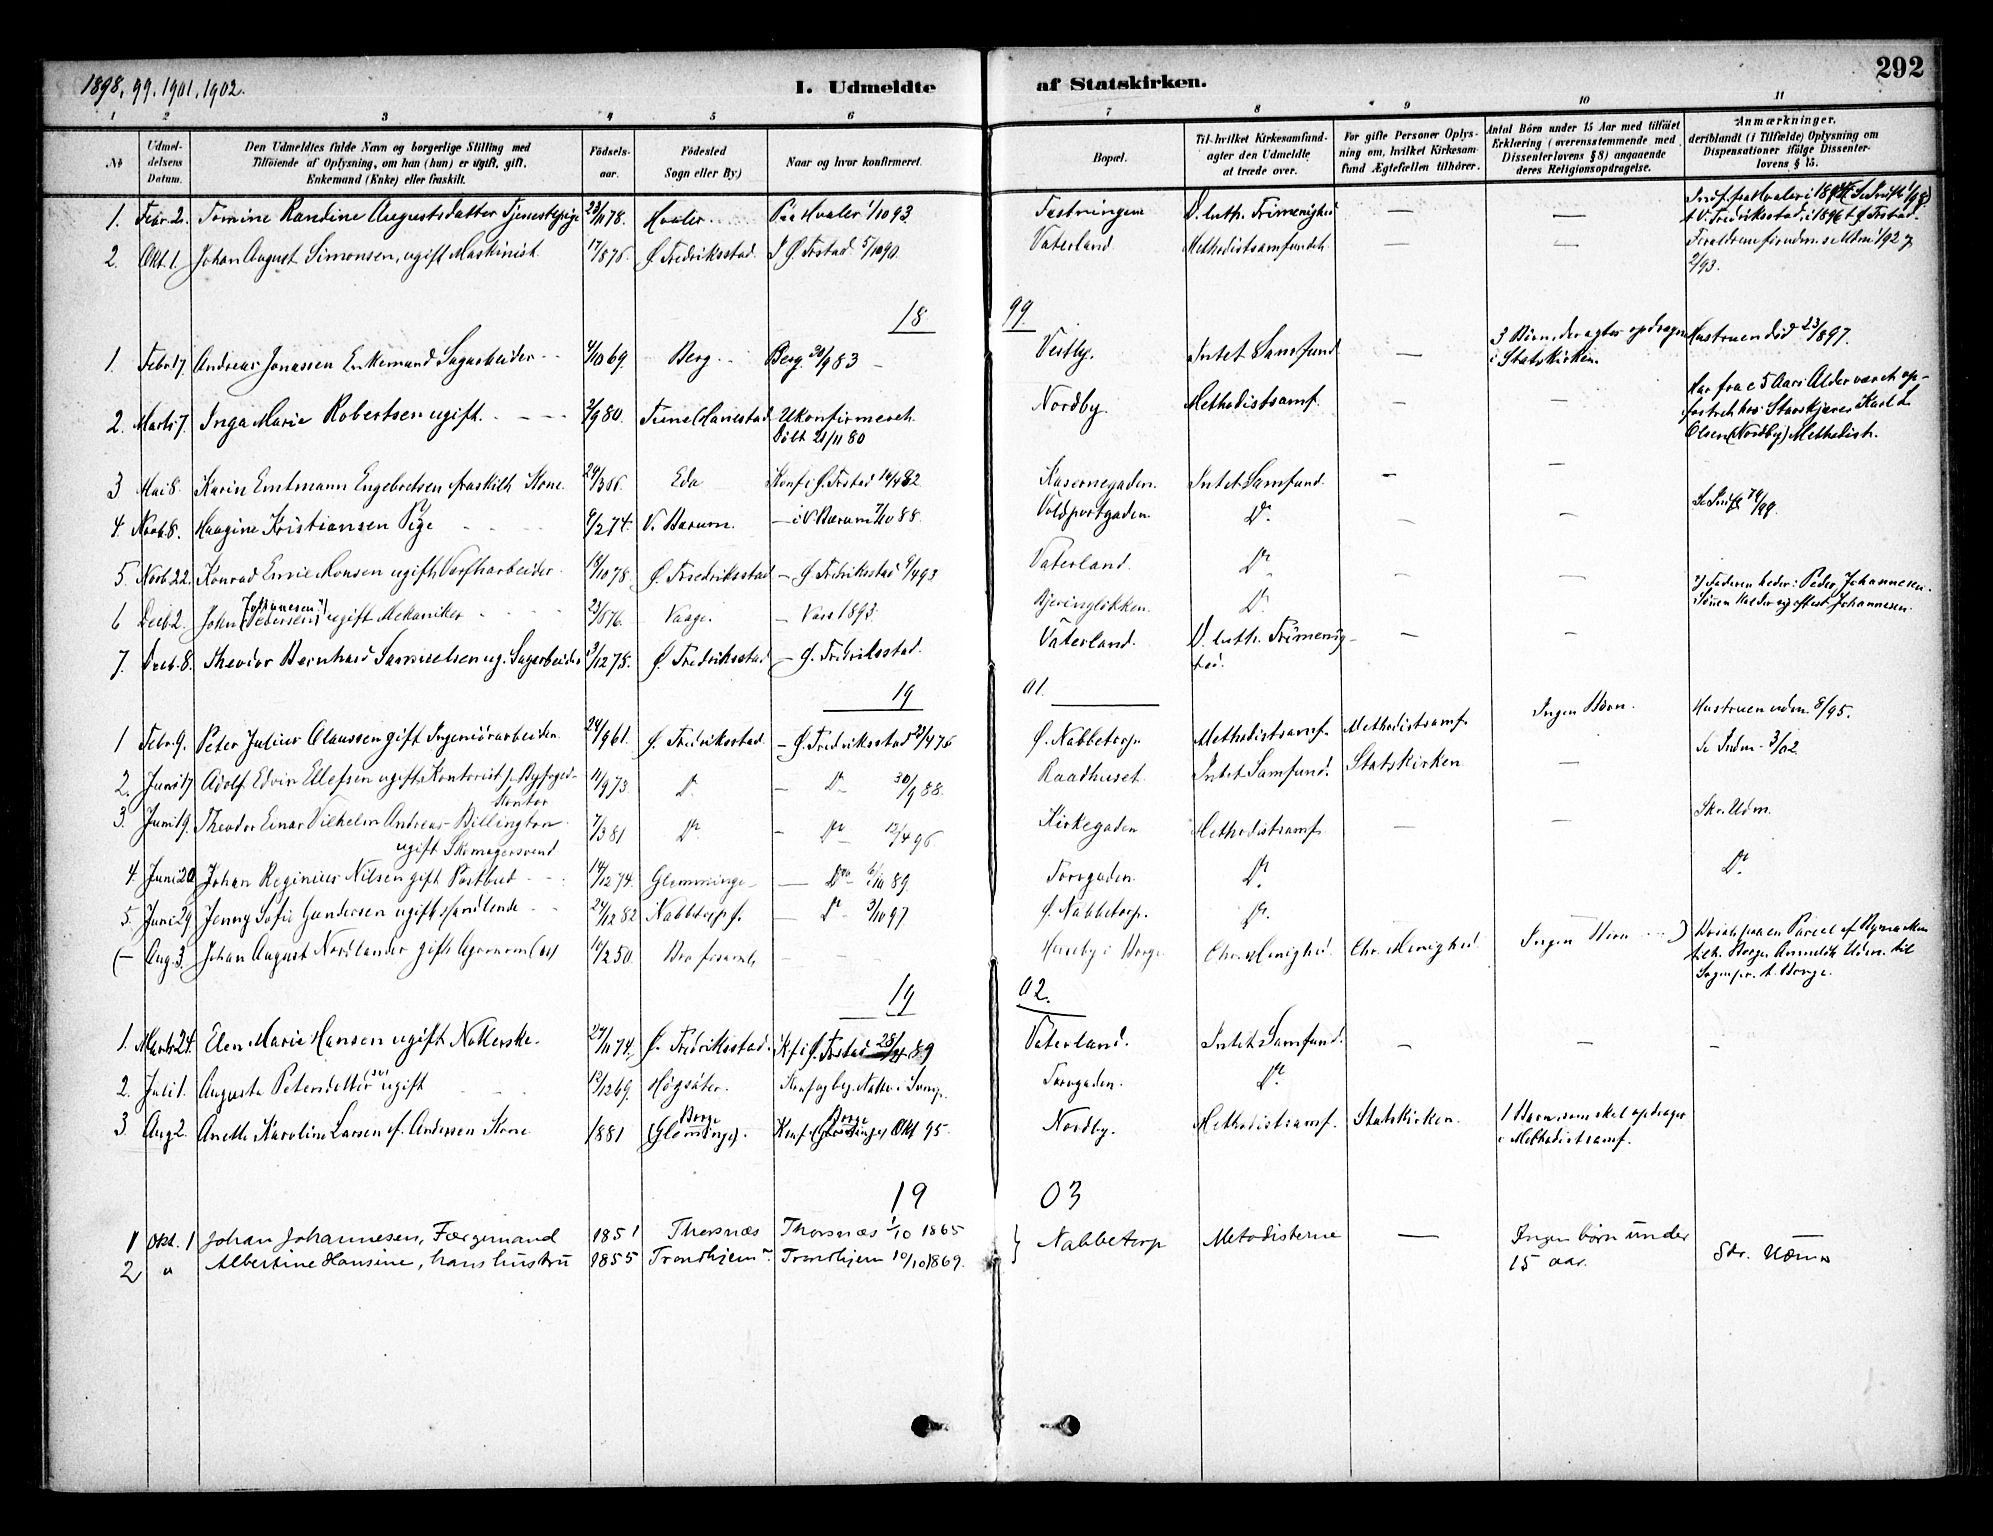 1898, 99, 1901, 1902.
I. Udmeldte af Statskirken.
292
1 2 3 4 5 6 7 8 9 10 11
No
Udmeldelsens Datum.
Den Udmeldtes fulde Navn og borgerlige Stilling med Tilføiende af Oplysning, om han (hun) er ugift, gift, Enkemand (Enke) eller fraskilt.
Fødselsaar.
Fødested Sogn eller By)
Naar og hvor konfirmeret.
Bopæl.
Til hvilket Kirkesamfund agter den Udmeldte at træde over.
For gifte Personer Oplysning om, hvilket Kirkesamfund Ægtefællen tilhører.
Antal Børn under 15 Aar med tilføiet Erklæring (overensstemmende med Dissenterlovens § 8) angaaende deres Religionsopdragelse.
Anmærkninger, deriblandt (i Tilfælde) Oplysning om Dispensationer ifølge Dissenterlovens § 15.
1. Febr. 2. Tomine Randine Augustsdatter Tjenestepige 23/1178. Hvaler. Paa Hvaler 1/10 93. D. luth. Frimenighed — —
2. Okt. 1. Johan August Simonsen, ugift Maskinist 17/876. Ø. Fredriksstad. I Ø. Frstad. 5/1090. Vaterland. Methodistsamfundet — — 2/93.
18 99
1. Febr. 17. Andreas Jonassen Enkemand Sagarbeider 4/1069. Berg. Berg. 30/983 Vestby. Intet Samfund — 3 Børn, der agtes opdragne i Statskirken. Hustruen død 23/897.
2. Marts 7. Inga Marie Robertsen ugift. 3/980. Tune (Hanestad Ukonfirmeret. Døbt 21/11 80 Nordby. Methodistsamf. — — Har fra c 5 Aars Alder været opfostret hos Stenskjærer Karl L. Olsen (Nordby) Methodist.
3 Mai 8. Karin Emtmann Engebretsen fraskilt Kone. Eda Konf i Ø. Frstad Kasernegaden. Intet Samfund. — —
4. Novb. 8. Haagine Kristiansen Pige 9/274. V. Bærum. — i V. Bærum 7/1088. Voldportgaden. Do. — —
5. Novb 22. Konrad Emil Monsen ugift Værftarbeider. 18/1078. Ø. Fredriksstad — Ø. Fredriksstad 9/493 Vaterland. Do — —
6 Decb 2. John Johannesen (Pedersen) ugift Mekaniker 23/576. Vaage. — Vaage 1893. Bjeringløkken. Do. Faderen heder: Peder Johannesen. Sønen kalder sig oftest Johannesen.
7. Decb. 8. Theodor Bernhard Samuelsen ug. Sagarbeider 3/1278. Ø. Fredriksstad — Ø. Fredriksstad. Vaterland. D. luth. Frimenighed. — —
19 01.
1 Febr. 9. Peter Julius Olaussen gift Ingeniørarbeider 24/961. Ø. Fredriksstad. — Ø. Fredriksstad 23/476 Ø. Nabbetorp. Methodistsamf. Methodistsamf. Ingen Børn. Hustruen udm. 8/95.
2. Juni 17 Adolf Edvin Ellefsen ugift Kontorist p. Byfoged-Kontor 11/973. Do. — Do 30/988. Raadhuset. Intet Samfund. Statskirken — Se Indm. 3/02.
3. Juni 19. Theodor Einar Vilhelm Andreas Billington ugift Skomagersvend 7/381 Do — Do 12/496 Kirkegaden Methodistsamf. — — Skr. Udm.
4. Juni 20 Johan Reginius Nilsen gift Postbud 14/1274. Glemminge — Do 6/1089. Torvgaden. Do. Do.
5. Juni 29 Jenny Sofie Gundersen ugift Handlende 24/1282 Nabbetorp f. — Do 3/1097 Ø. Nabbetorp. Do.
(— Aug. 3. Johan August Nordlander gift Agronom 10/250. Bro forsaml. — Henneby i Borge Chr. Menighed. Chr. Menighed. Ingen Børn
19 02.
1. Marts 24. Elen Marie Hansen ugift Natterske. 27/1074. Ø. Fredriksstad. Kf i Ø. Frstad 28/489 Vaterland. Intet Samfund. — — —
2. Juli 1. Augusta Petersdotter ugift 12/1269. Högsäter. Torvgaden. Do.
3 Aug 2. Anette Karoline Larsen f. Andersen Kone 1881 Borge (Glemminge). Konf. i Borge (Glemminge) Okt 95. Nordby. Methodistsamf. Statskirken. 1 Barn, som skal opdrages i Methodistsamf.
19 03
1 Okt. 1 Johan Johannesen, Færgemand 1851 Thorsnæs Thorsnæs 1/10 1865 } Nabbetorp Metodisterne — Ingen børn under 15 aar. Skr. Udm.
2 " Albertine Hansine, hans hustru 1855 Trondhjem Trondhjem 10/10 1869.